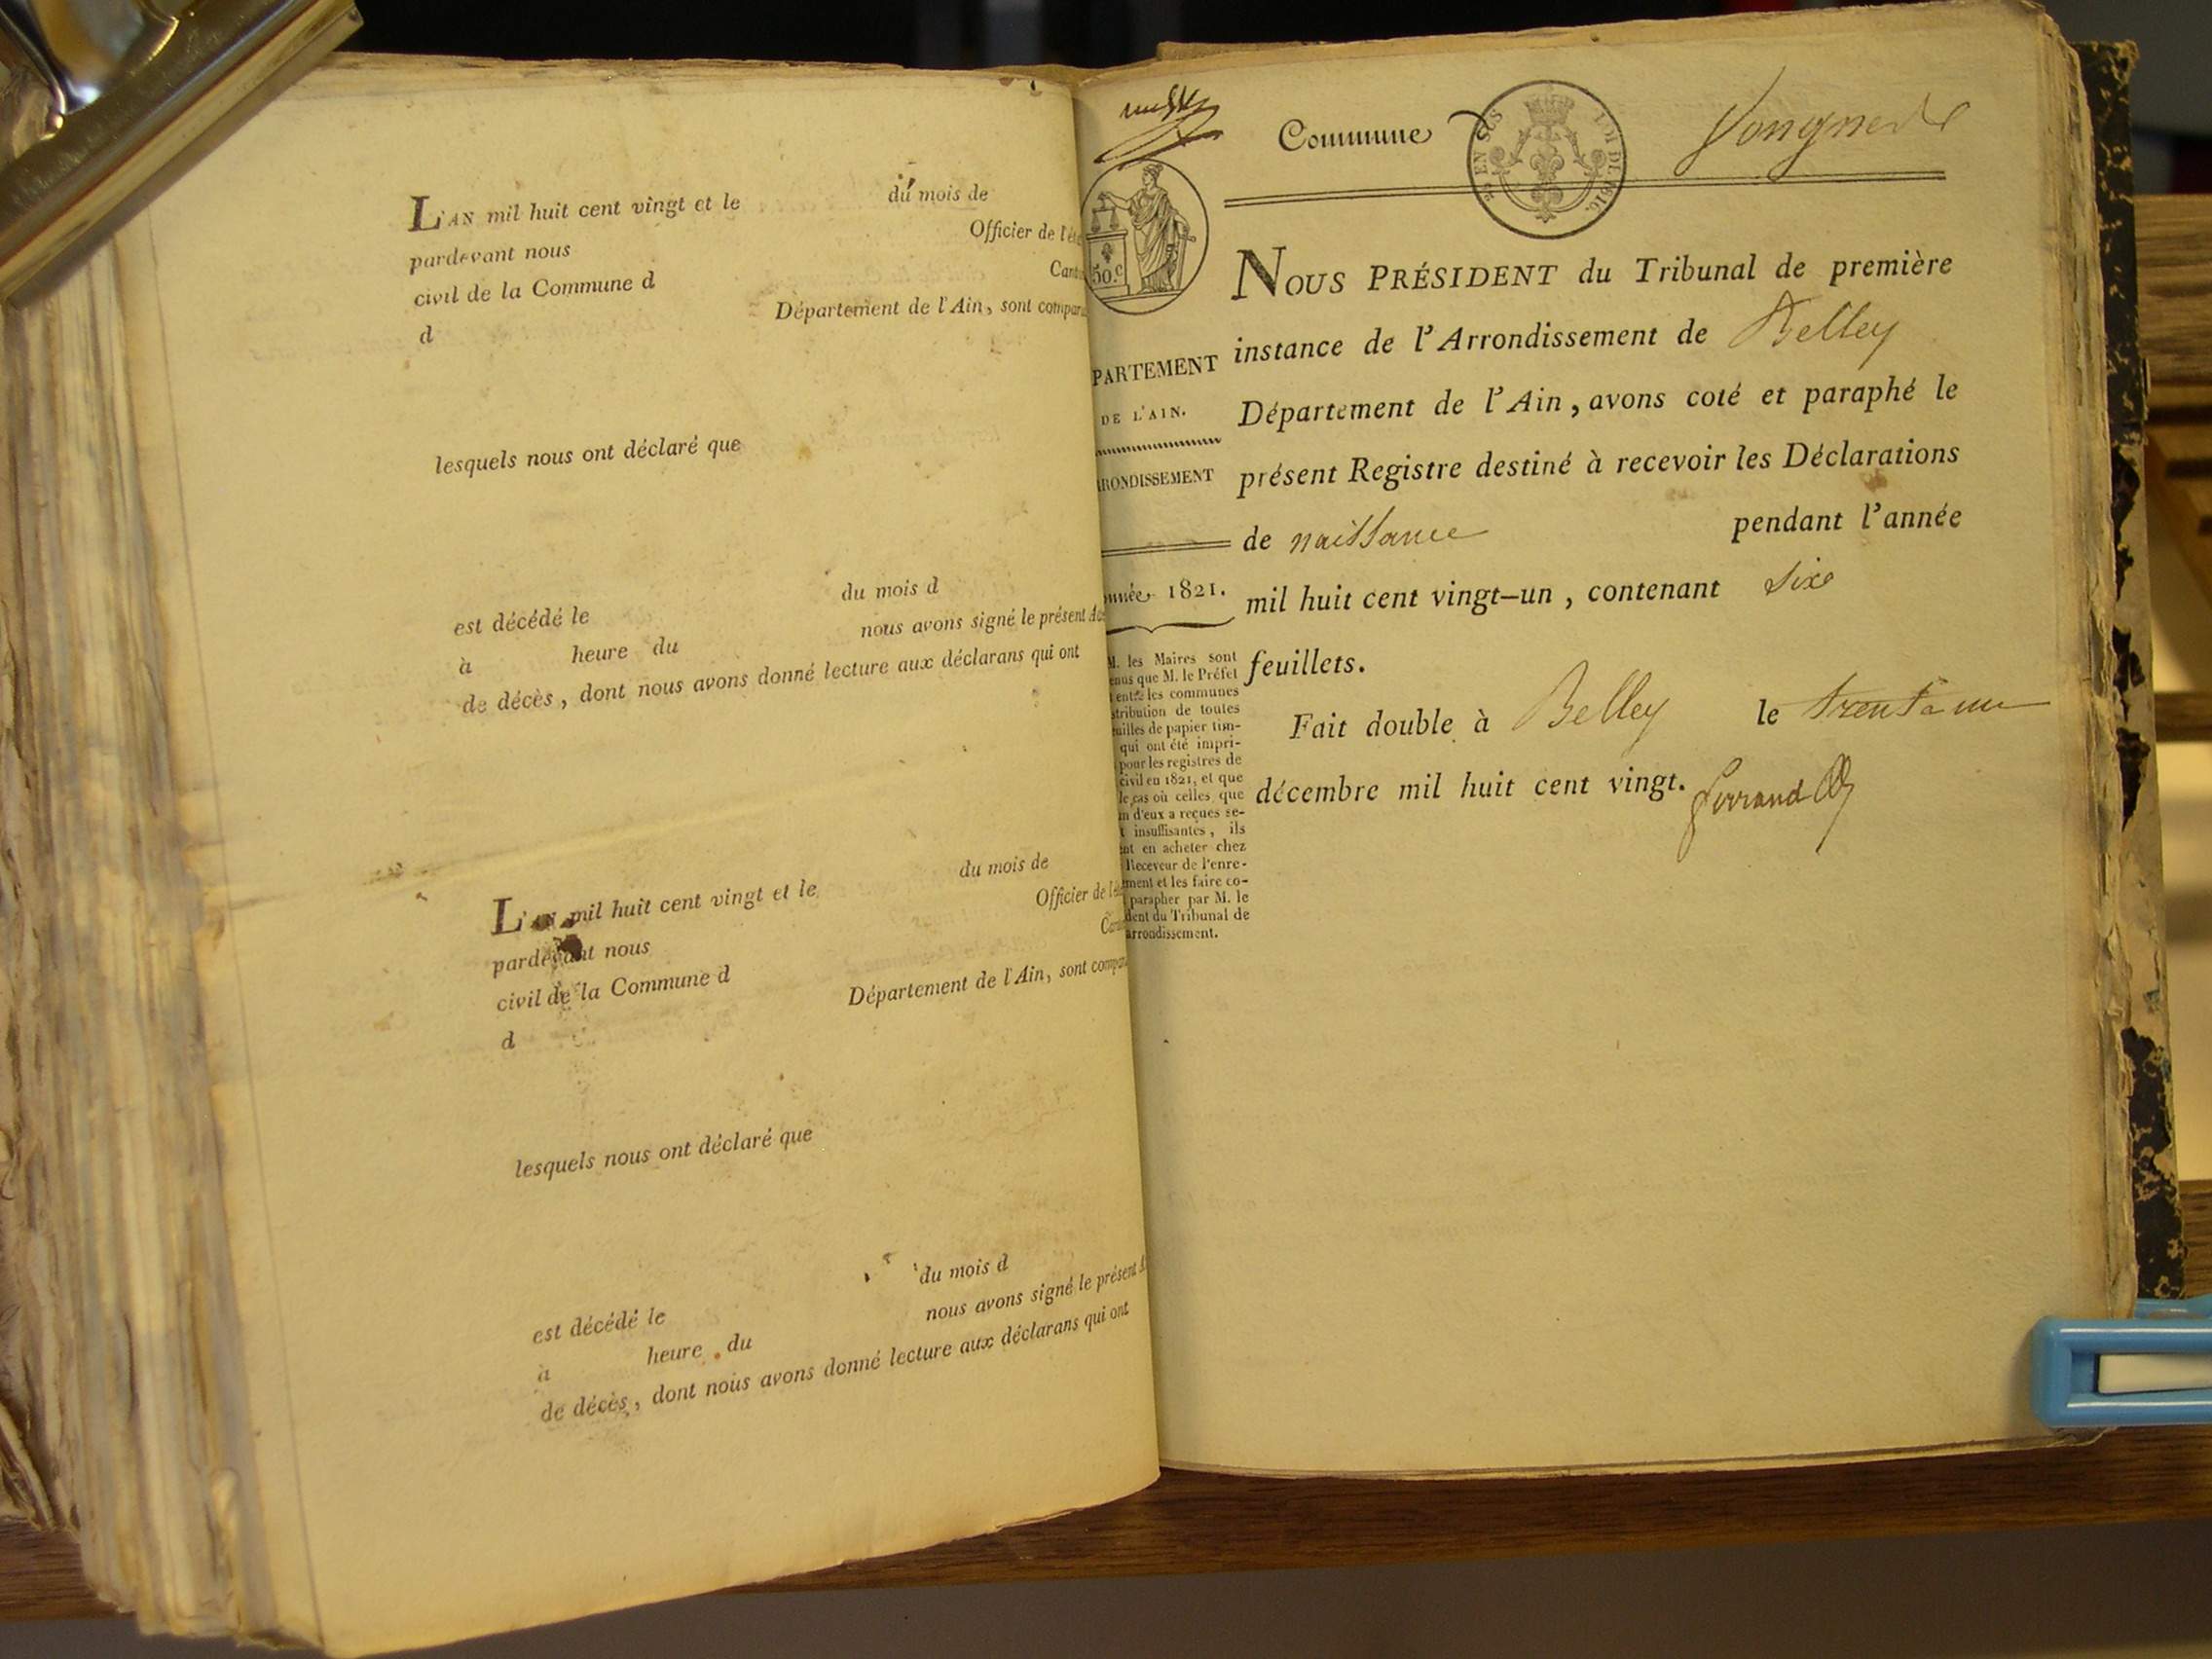 L'AN mil huit cent vingt et le du mois de
pardevant nous Officier de l'ét
civil de la Commune d Cant
d Département de l'Ain, sont compar
lesquels nous ont déclaré que
est décédé le du mois d
à heure du nous avons signé le présent Ac
de décès, dont nous avons donné lecture aux déclarans qui ont
L'AN mil huit cent vingt et le du mois de
pardevant nous Officier de l'ét
civil de la Commune d Ca
d Département de l'Ain, sont compa
lesquels nous ont déclaré que
est décédé le du mois d
à heure du nous avons signé le présent A
de décès, dont nous avons donné lecture aux déclarans qui ont
Commune
50.c
PARTEMENT
DE L'AIN.
RONDISSEMENT
nnée 1821.
M. les Maires sont
enus que M. le Préfet
entre les communes
stribution de toutes
uilles de papier tim-
qui ont été impri-
pour les registres de
civil en 1821, et que
le cas où celles que
un d'eux a reçues se-
t insuffisantes, ils
nt en acheter chez
Receveur de l'enre-
ment et les faire co-
parapher par M. le
dent du Tribunal de
arrondissement.
NOUS PRÉSIDENT du Tribunal de première
instance de l'Arrondissement de Belley
Département de l'Ain, avons coté et paraphé le
présent Registre destiné à recevoir les Déclarations
de naissance pendant l'année
mil huit cent vingt-un, contenant six
feuillets.
Fait double à Belley le trente un
décembre mil huit cent vingt. Ferrand